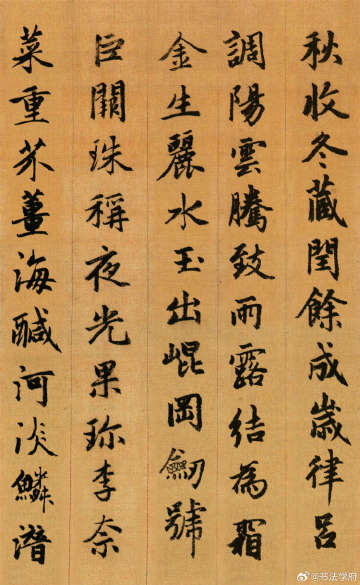 秋收冬藏閏餘成歲律呂
調陽雲騰致雨露結為霜
金生麗水玉出崐岡劒號
巨闕珠稱夜光果珎李柰
菜重芥薑海醎河淡鱗潛
@书法学府